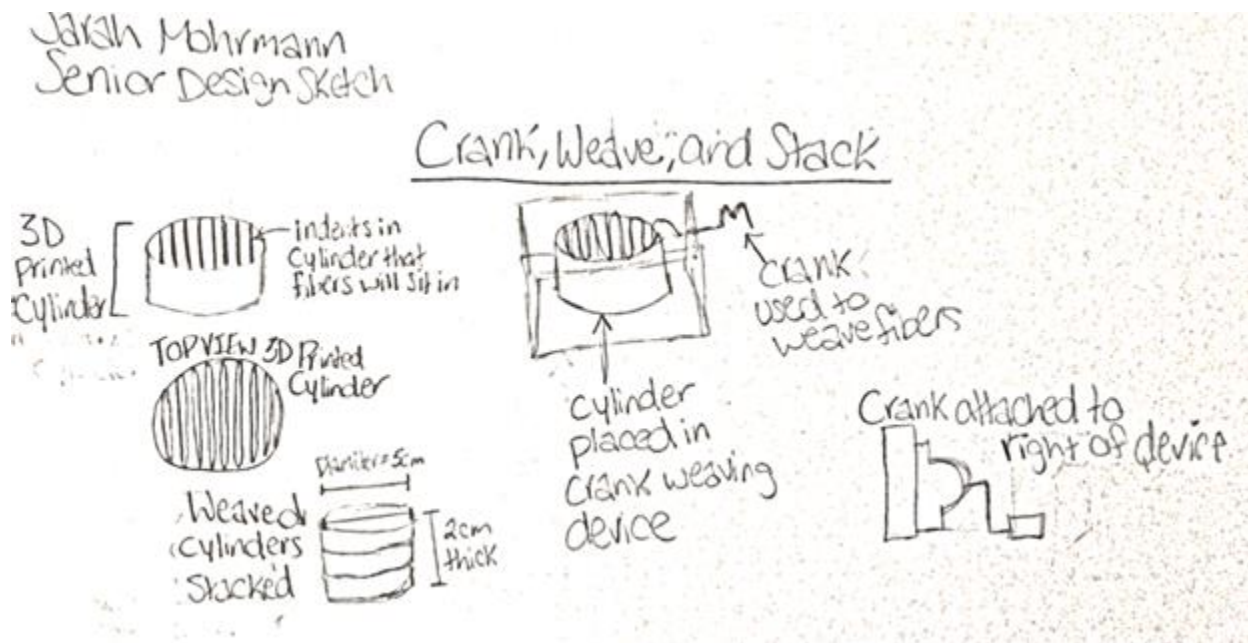 Jarah Mohrmann
Senior Design Sketch
Crank, Weave, and Stack
3D
Printed
Cylinder
indents in
Cylinder that
fibers will sit in
TOP VIEW 3D Printed
Cylinder
Diameter = 5cm
Weaved
Cylinders
Stacked
2cm
thick
Crank
used to
weave fibers
Cylinder
placed in
Crank weaving
device
Crank attached to
right of device